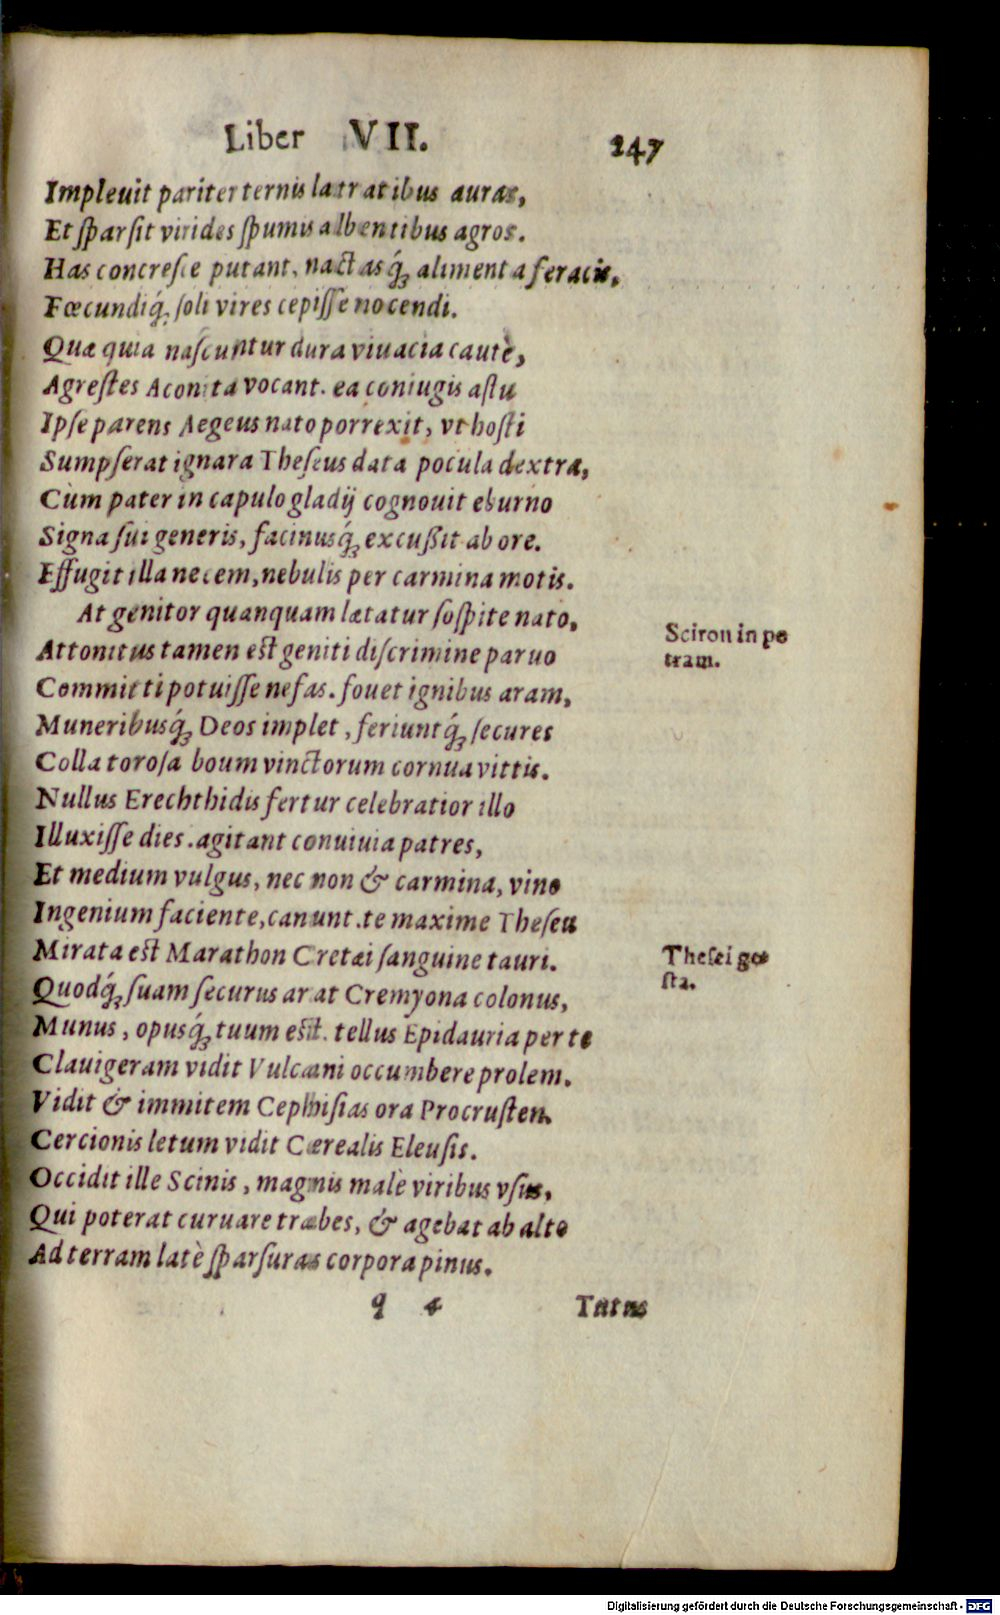 Liber VII. 247
Impleuit pariter ternis latratibus auras,
Et ſparſit virides ſpumis albentibus agros.
Has concreſce putant, nactasq́; alimenta feracis,
Fœcundiq́; ſoli vires cepiſſe nocendi.
Quæ quia naſcuntur dura viuacia caute,
Agreſtes Aconita vocant. ea coniugis aſtu
Ipſe parens Aegeus nato porrexit, vt hoſti
Sumpſerat ignara Theſeus data pocula dextra,
Cùm pater in capulo gladij cognouit eburno
Signa ſui generis, facinusq́; excußit ab ore.
Effugit illa necem, nebulis per carmina motis.
At genitor quanquam lætatur ſoſpite nato,
Sciron in pe
Attonitus tamen eſt geniti diſcrimine paruo
tram.
Committi potuiſſe nefas. fouet ignibus aram,
Muneribusq́; Deos implet, feriuntq́; ſecures
Colla toroſa boum vinctorum cornua vittis.
Nullus Erechthidis fertur celebratior illo
Illuxiſſe dies. agitant conuiuia patres,
Et medium vulgus, nec non & carmina, vino
Ingenium faciente, canunt. te maxime Theſeu
Mirata eſt Marathon Cretæi ſanguine tauri.
Theſei ge
Quodq́; ſuam ſecurus arat Cremyona colonus,
ſta.
Munus, opusq́; tuum eſt. tellus Epidauria per te
Clauigeram vidit Vulcani occumbere prolem.
Vidit & immitem Cephiſias ora Procruſten.
Cercionis letum vidit Cærealis Eleuſis.
Occidit ille Scinis, magnis malè viribus vſus,
Qui poterat curuare trabes, & agebat ab alto
Ad terram latè ſparſuras corpora pinus.
q 4 Tutus
Digitalisierung gefördert durch die Deutsche Forschungsgemeinschaft - DFG